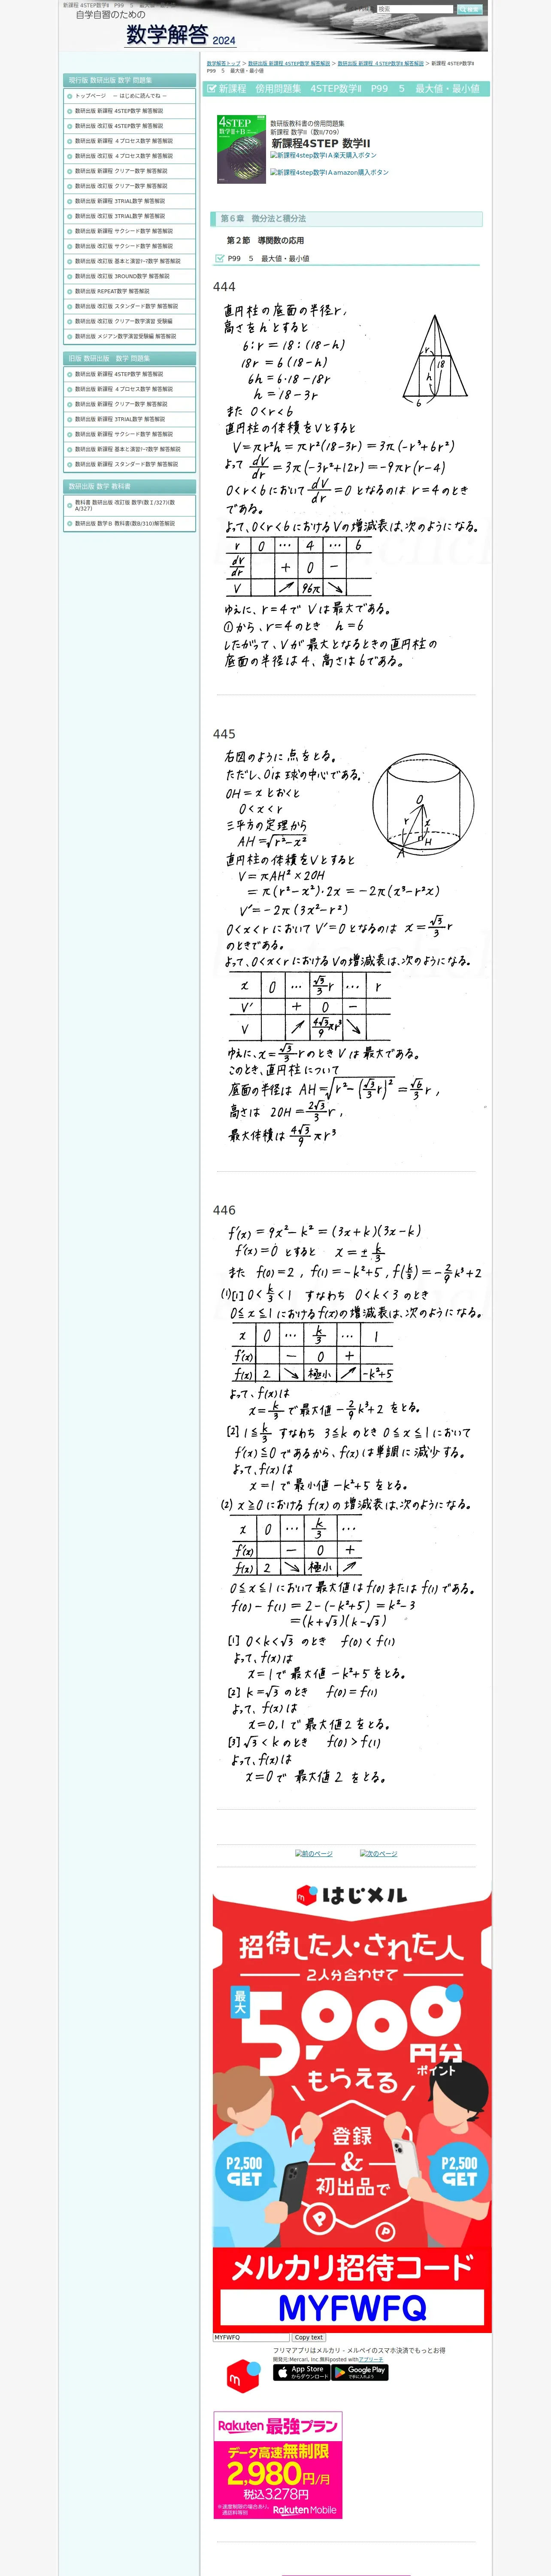 新課程 4STEP数学Ⅱ P99 5 最大値・最小値
自学自習のための
数学解答 2024
検索
数学解答トップ > 数研出版 新課程 4STEP数学 解答解説 > 数研出版 新課程 4STEP数学Ⅱ 解答解説 > 新課程 4STEP数学Ⅱ
P99 5 最大値・最小値
現行版 数研出版 数学 問題集
トップページ － はじめに読んでね －
数研出版 新課程 4STEP数学 解答解説
数研出版 改訂版 4STEP数学 解答解説
数研出版 新課程 4プロセス数学 解答解説
数研出版 改訂版 4プロセス数学 解答解説
数研出版 新課程 クリアー数学 解答解説
数研出版 改訂版 クリアー数学 解答解説
数研出版 新課程 3TRIAL数学 解答解説
数研出版 改訂版 3TRIAL数学 解答解説
数研出版 新課程 サクシード数学 解答解説
数研出版 改訂版 サクシード数学 解答解説
数研出版 改訂版 基本と演習ﾃｰﾏ数学 解答解説
数研出版 改訂版 3ROUND数学 解答解説
数研出版 REPEAT数学 解答解説
数研出版 改訂版 スタンダード数学 解答解説
数研出版 改訂版 クリアー数学演習 受験編
数研出版 メジアン数学演習受験編 解答解説
旧版 数研出版 数学 問題集
数研出版 新課程 4STEP数学 解答解説
数研出版 新課程 4プロセス数学 解答解説
数研出版 新課程 クリアー数学 解答解説
数研出版 新課程 3TRIAL数学 解答解説
数研出版 新課程 サクシード数学 解答解説
数研出版 新課程 基本と演習ﾃｰﾏ数学 解答解説
数研出版 新課程 スタンダード数学 解答解説
数研出版 数学 教科書
教科書 数研出版 改訂版 数学(数Ⅰ/327)(数
A/327)
数研出版 数学B 教科書(数B/310)解答解説
新課程 傍用問題集 4STEP数学Ⅱ P99 5 最大値・最小値
4STEP
数学Ⅱ+B
数研版教科書の傍用問題集
新課程 数学II（数II/709）
新課程4STEP 数学II
新課程4step数学ⅠA楽天購入ボタン
新課程4step数学ⅠAamazon購入ボタン
第６章 微分法と積分法
第２節 導関数の応用
P99 5 最大値・最小値
444
直円柱の底面の半径r,
高さをhとすると
6:r = 18:(18-h)
18r = 6(18-h)
6h = 6・18-18r
h = 18-3r
また 0<r<6
直円柱の体積をVとすると
V=πr²h=πr²(18-3r)=3π(-r³+6r²)
よって dV/dr = 3π(-3r²+12r) = -9πr(r-4)
0<r<6において dV/dr = 0 となるのは r=4のとき
である。
よって、0<r<6におけるVの増減表は、次のようになる。
r 0 … 4 … 6
dV/dr + 0 -
V ↗ 96π ↘
ゆえに、r=4で Vは最大である。
①から、r=4のとき h=6
したがって、Vが最大となるときの直円柱の
底面の半径は4、高さは6である。
r 18 h 6
445
右図のように点をとる。
ただし、Oは球の中心である。
OH=xとおくと
0<x<r
三平方の定理から
AH=√(r²-x²)
直円柱の体積をVとすると
V=πAH²×2OH
=π(r²-x²)・2x=-2π(x³-r²x)
V'=-2π(3x²-r²)
0<x<rにおいてV'=0となるのは x=√3/3 r
のときである。
よって、0<x<rにおけるVの増減表は、次のようになる。
x 0 … √3/3 r … r
V' + 0 -
V ↗ 4√3/9 πr³ ↘
ゆえに、x=√3/3 rのときVは最大である。
このとき、直円柱について
底面の半径は AH=√(r²-(√3/3 r)²)=√6/3 r,
高さは 2OH=2√3/3 r,
最大体積は 4√3/9 πr³
O r x H A
446
f'(x)=9x²-k²=(3x+k)(3x-k)
f'(x)=0とすると x=±k/3
また f(0)=2, f(1)=-k²+5, f(k/3)=-2/9 k³+2
(1)[1] 0<k/3<1 すなわち 0<k<3のとき
0≦x≦1におけるf(x)の増減表は、次のようになる。
x 0 … k/3 … 1
f'(x) - 0 +
f(x) 2 ↘ 極小 ↗ -k²+5
よって、f(x)は
x=k/3で最大値 -2/9 k³+2 をとる。
[2] 1≦k/3 すなわち 3≦kのとき 0≦x≦1において
f'(x)≦0であるから、f(x)は単調に減少する。
よって、f(x)は
x=1で最小値 -k²+5をとる。
(2) x≧0におけるf(x)の増減表は、次のようになる。
x 0 … k/3 …
f'(x) - 0 +
f(x) 2 ↘ 極小 ↗
0≦x≦1において最大値はf(0)またはf(1)である。
f(0)-f(1)=2-(-k²+5)=k²-3
=(k+√3)(k-√3)
[1] 0<k<√3のとき f(0)<f(1)
よって、f(x)は
x=1で最大値 -k²+5をとる。
[2] k=√3のとき f(0)=f(1)
よって、f(x)は
x=0,1で最大値2をとる。
[3] √3<kのとき f(0)>f(1)
よって、f(x)は
x=0で最大値2をとる。
前のページ 次のページ
はじメル
招待した人・された人
2人分合わせて
最大
5,000円分
ポイント
もらえる
登録
&
初出品で
P2,500
GET
P2,500
GET
メルカリ招待コード
MYFWFQ
MYFWFQ Copy text
フリマアプリはメルカリ - メルペイのスマホ決済でもっとお得
開発元:Mercari, Inc.無料posted withアプリーチ
App Store
からダウンロード
Google Play
で手に入れよう
Rakuten 最強プラン
データ高速無制限
2,980円/月
税込3278円
※速度制限の場合あり。
通話料等別
Rakuten Mobile